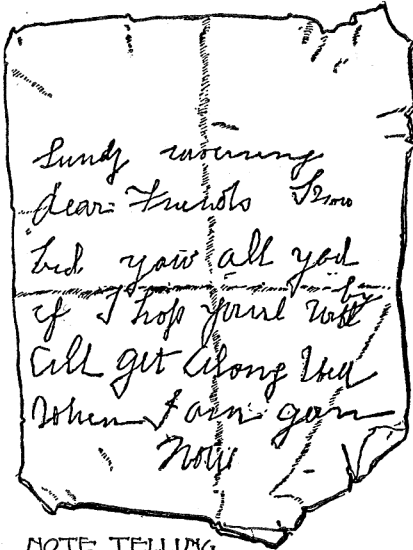 Sundy morning
dear Friends I
bid you all
by
if I hop youl Will
all get along
When I am gon
Now
NOTE TELLING